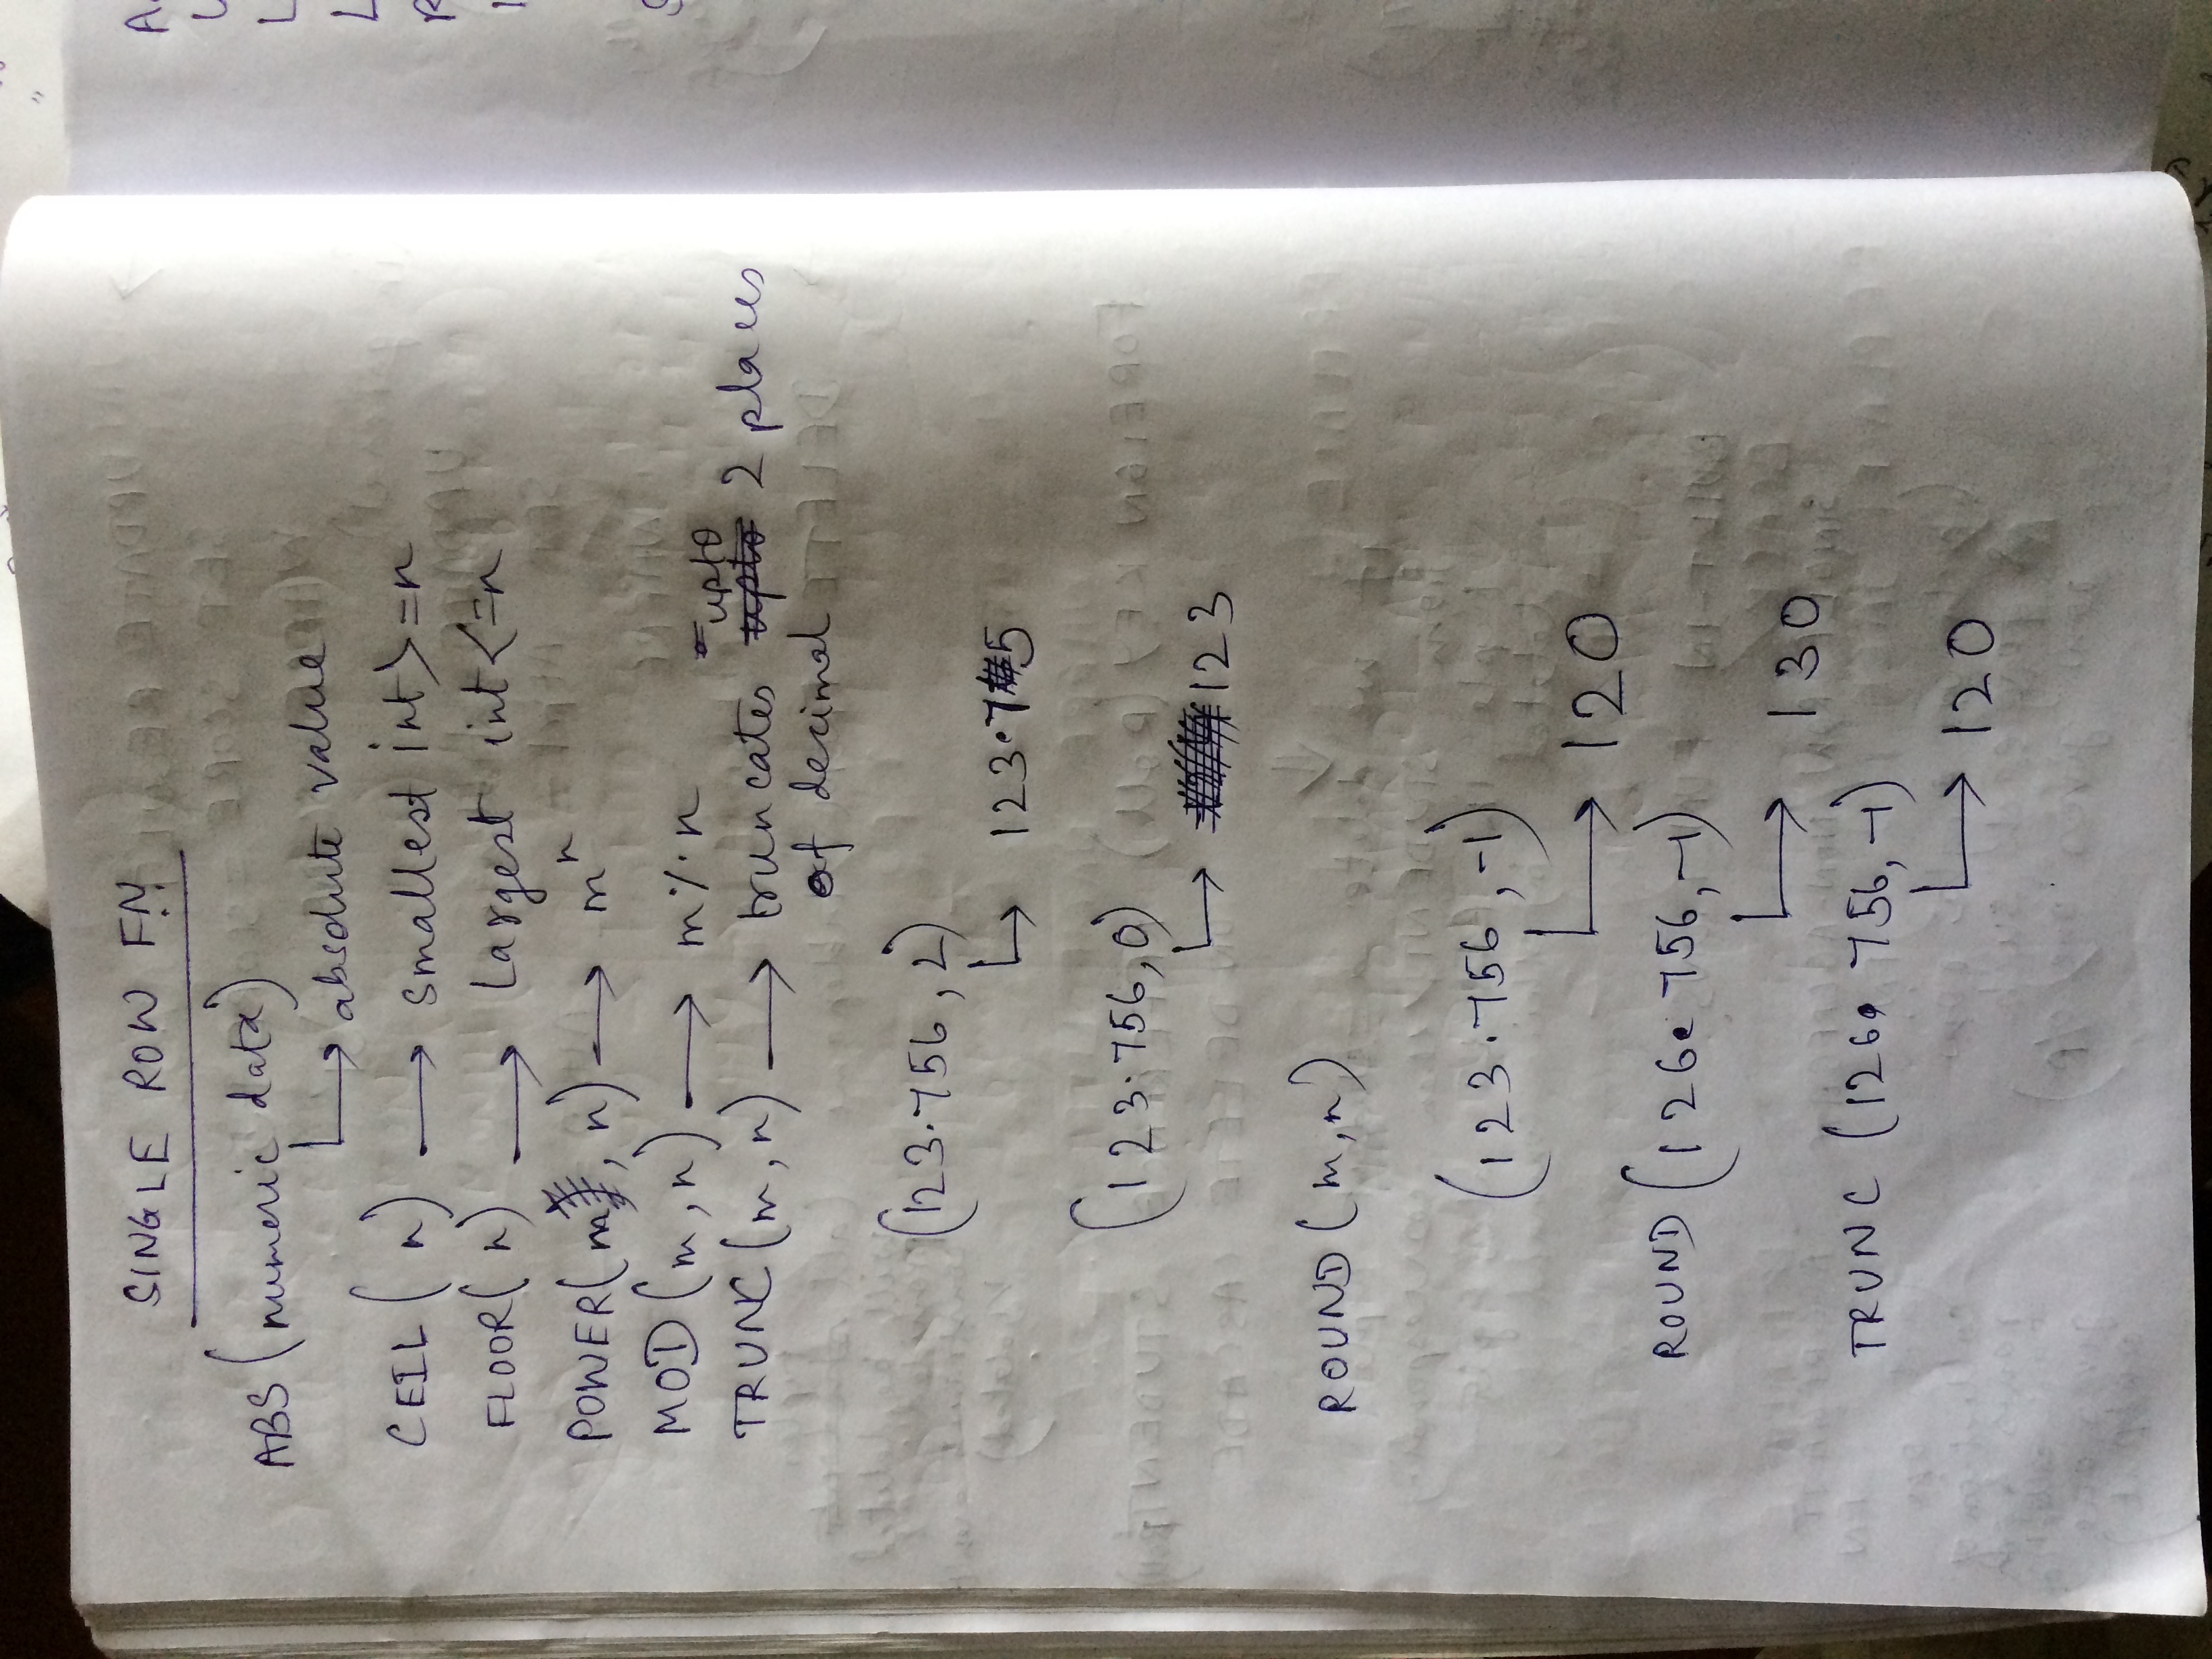 SINGLE ROW FN
ABS (numeric data)
↳ absolute value
CEIL ( n ) → smallest int >= n
FLOOR( n ) → Largest int <= n
POWER( m, n) → mⁿ
MOD (m, n) → m % n
TRUNC (m, n) → truncates upto 2 places
of decimal
(123.756, 2)
↳ 123.75
(123.756, 0)
↳ 123
ROUND (m, n)
(123.756, -1)
↳ 120
ROUND (126.756, -1)
↳ 130
TRUNC (126.756, -1)
↳ 120